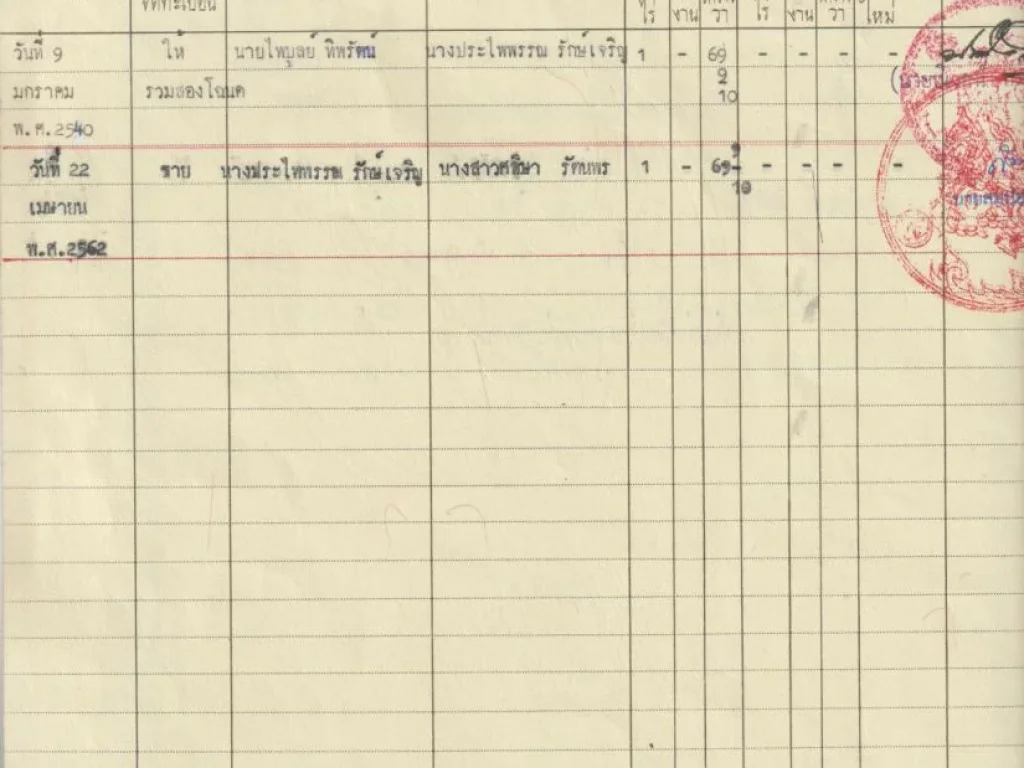 จดทะเบียน
ไร่ งาน วา ไร่ งาน วา ใหม่
วันที่ 9 ให้ นายไพบูลย์ ทิพรัตน์ นางประไพพรรณ รักษ์เจริญ 1 - 69 - - - -
9
มกราคม รวมสองโฉนด 10
พ.ศ.2540
9
วันที่ 22 ขาย นางประไพพรรณ รักษ์เจริญ นางสาวศริษา รัตนพร 1 - 69 - - - -
10
เมษายน
พ.ศ.2562